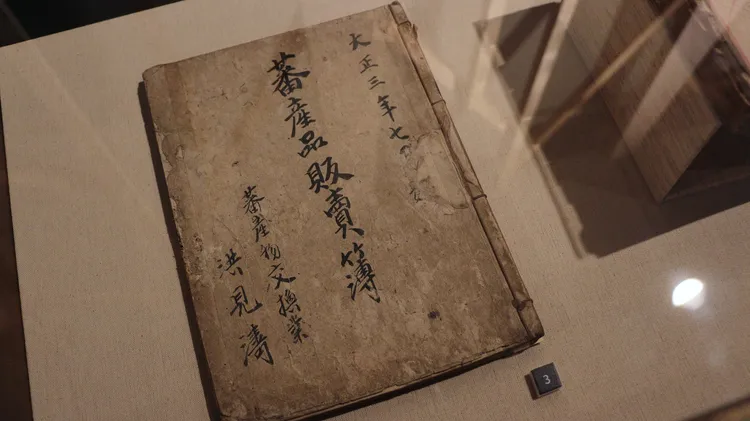 大正三年七
蕃產品販賣簿
蕃產物交換業
洪見濤
3